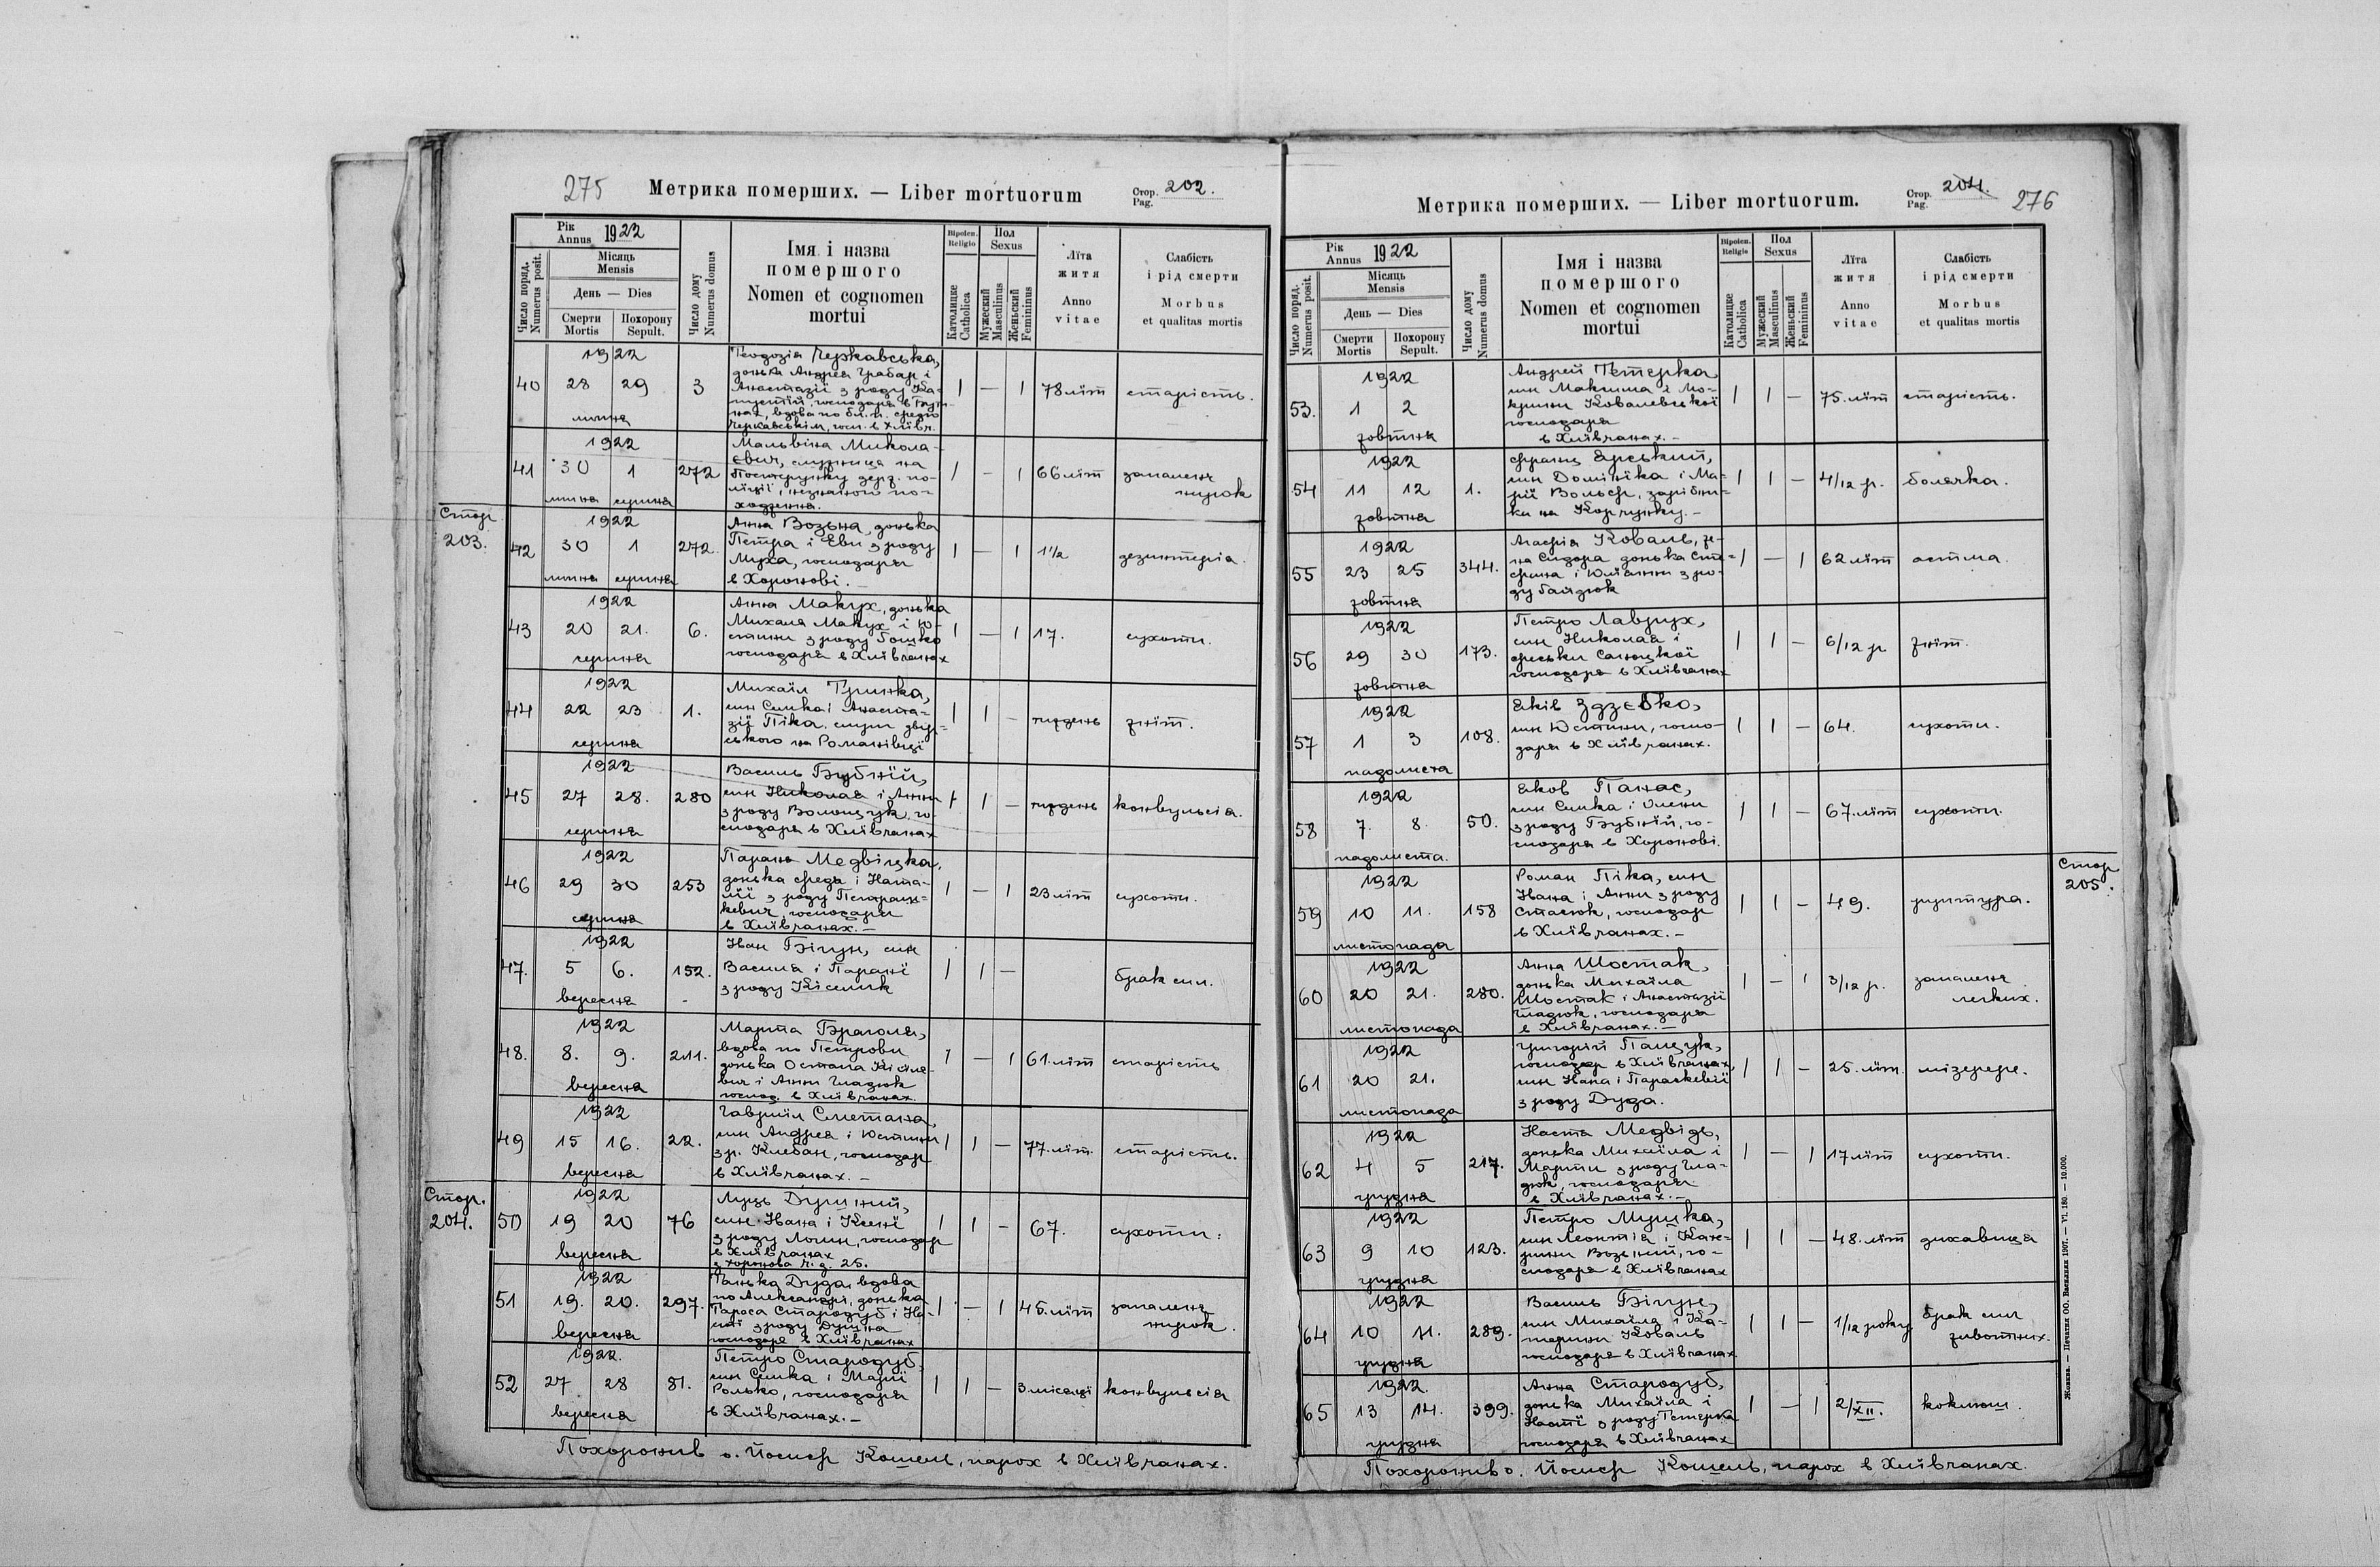 275 Метрика померших. — Liber mortuorum Стор. Pag. 202.
Рік Annus 1922
Місяць Mensis
День — Dies
Число поряд. Numerus posit.
Смерти Mortis
Похорону Sepult.
Число дому Numerus domus
Імя і назва помершого
Nomen et cognomen mortui
Віроісп. Religio
Католицке Catholica
Пол Sexus
Мужеский Masculinus
Женьский Femininus
Лїта житя
Anno vitae
Слабість і рід смерти
Morbus et qualitas mortis
1922
40 28 29 липня 3
Теодозія Черкавська,
донька Андрея Грабар і
Анастазії з роду
вдова по
1 — 1 78 літ старість.
1922
41 30 1 липня серпня 272
Мальвіна Микола-
євич, служниця на
Постерунку держ. по-
ліції, незнаного по-
ходження.
1 — 1 66 літ запаленя нирок
Стор. 203.
1922
42 30 1 липня серпня 272.
Анна Возьна, донька
Петра і Еви з роду
Муха, господаря
в Хоронові. —
1 — 1 1½ дезинтерія.
1922
43 20 21. серпня 6.
Анна Макух, донька
Михаля Макух і Ю-
стини з роду Гошко
господаря в Хлївчанах
1 — 1 17. сухоти.
1922
44 22 23 серпня 1.
Михаїл Гринка,
син Семка і Анаста-
зії Піка, слуги двір-
ського на Романівці
1 1 — тиждень зніт.
1922
45 27 28. серпня 280
Василь Бубній,
син Николая і Анни
з роду Волощук, го-
сподаря в Хлївчанах
1 1 — тиждень конвульсія.
1922
46 29 30 серпня 253
Парань Медвіцка,
донька Федя і Ната-
лії з роду
кевич, господаря
в Хлївчанах. —
1 — 1 23 літ сухоти.
1922
47. 5 6. вересня 152.
Іван Бігун, син
Василя і Парані
з роду Кіселик
1 1 — брак сил.
1922
48. 8. 9. вересня 211.
Марта Брагола,
вдова по Петрови
донька Остапа Кісіле-
вич і Анни Гладюк
господ. в Хлївчанах.
1 — 1 61 літ старість
1922
49 15 16. вересня 22.
Гавриїл Сметана,
син Андрея і Юстини
з р. Клебан, господар
в Хлївчанах. —
1 1 — 77. літ. старість.
Стор. 204.
1922
50 19 20 вересня 76
Луць Душний,
син Івана і Ксені
з роду Логин, господар
в Хлївчанах
з Хоронова ч. д. 25.
1 1 — 67. сухоти.
1922
51 19. 20. вересня 297.
Танька Дуда, вдова
по Александрі, донька
Тараса Стародуб і На-
сті з роду Душна
господаря в Хлївчанах
1 — 1 45. літ запаленя нирок.
1922.
52 27 28 вересня 81.
Петро Стародуб,
син Семка і Марії
Ролько, господаря
в Хлївчанах. —
1 1 — 3 місяці конвульсія
Похоронив о. Йосиф Кошель, парох в Хлївчанах.
Метрика померших. — Liber mortuorum. Стор. Pag. 204. 276
Рік Annus 1922
Місяць Mensis
День — Dies
Число поряд. Numerus posit.
Смерти Mortis
Похорону Sepult.
Число дому Numerus domus
Імя і назва помершого
Nomen et cognomen mortui
Віроісп. Religio
Католицке Catholica
Пол Sexus
Мужеский Masculinus
Женьский Femininus
Лїта житя
Anno vitae
Слабість і рід смерти
Morbus et qualitas mortis
1922
53. 1 2 жовтня
Андрей Тетерка
син Максима і Мо-
крини Ковалевської
господаря
в Хлївчанах. —
1 1 — 75. літ старість.
1922
54 11 12 жовтня 1.
Франц Ярський,
син Домініка і Ма-
рії Вольф, зарібни-
ка на Корчунку. —
1 1 — 4/12 р. болячка.
1922
55 23 25 жовтня 344.
Агафія Коваль, же-
на Сидора донька Сте-
фана і Юліанни з ро-
ду Байдюк
1 — 1 62 літ астма
1922
56 29 30 жовтня 173.
Петро Лаврух,
син Николая і
Феськи Саницкої
господаря в Хлївчанах
1 1 — 6/12 р зніт.
1922
57 1 3 падолиста 108.
Яків Здзєбко,
син Юстини, госпо-
даря в Хлївчанах.
1 1 — 64. сухоти.
1922
58 7. 8. падолиста. 50.
Яков Панас,
син Семка і Олени
з роду Бубній, го-
сподаря в Хоронові.
1 1 — 67. літ сухоти.
Стор. 205.
1922
59 10 11. листопада 158
Роман Піка, син
Івана і Анни з роду
Стасюк, господар
в Хлївчанах. —
1 1 — 49. руптура.
1922
60 20 21. листопада 280.
Анна Шостак,
донька Михаїла
Шостак і Анастазії
Гладюк, господаря
в Хлївчанах. —
1 — 1 3/12 р. запаленя легких.
1922
61 20 21. листопада
Григорій Панчук,
господар в Хлївчанах,
син Івана і Параскевії
з роду Дуда.
1 1 — 25. літ. мізерере.
1922
62 4 5 грудня 217.
Наста Медвідь,
донька Михаїла і
Марти з роду Гла-
дюк, господаря
в Хлївчанах. —
1 — 1 17 літ сухоти.
1922
63 9 10 грудня 123.
Петро Мушка,
син Леонтія і Кате-
рини Возьний, го-
сподаря в Хлївчанах
1 1 — 48. літ духавиця
1922
64 10 11. грудня 289.
Василь Бігун,
син Михаїла і Ка-
терини Коваль
господаря в Хлївчанах
1 1 — 1/12 року брак сил животних.
1922.
65 13 14. грудня 399.
Анна Стародуб,
донька Михаїла і
Насті з роду Тетерка
господаря в Хлївчанах
1 — 1 2/XII. коклюш.
Похоронив о. Йосиф Кошель, парох в Хлївчанах.
Жовква. — Печатня ОО. Василиян 1907. — VI. 180. — 10.000.